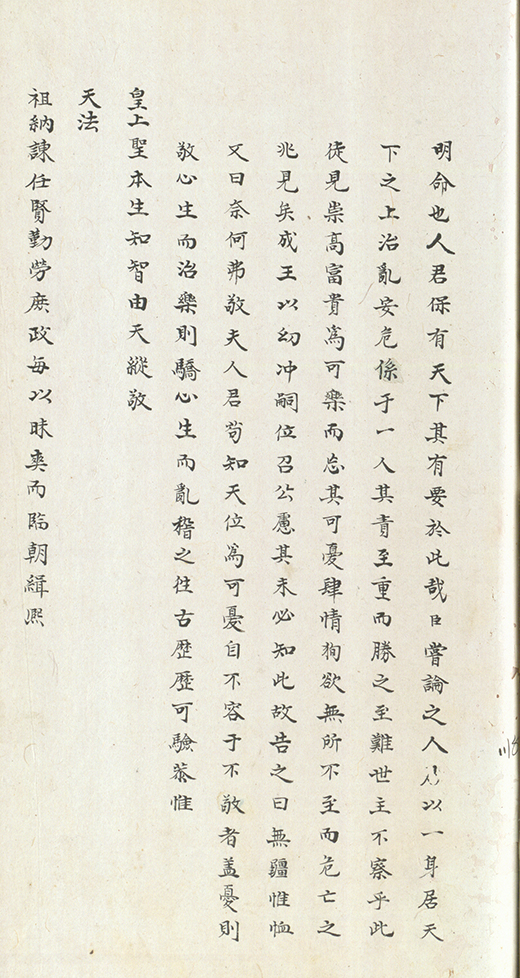 明命也人君保有天下其有要於此哉臣嘗論之人以一身居天
下之上治亂安危係于一人其責至重而勝之至難世主不察乎此
徒見崇高富貴爲可樂而忘其可憂肆情狥欲無所不至而危亡之
兆見矣成王以幼冲嗣位召公慮其未必知此故告之曰無疆惟恤
又曰奈何弗敬夫人君苟知天位爲可憂自不容于不敬者盖憂則
敬心生而治樂則驕心生而亂稽之往古歴歴可驗恭惟
皇上聖本生知智由天縱敬
天法
祖納諫任賢勤勞庶政每以昧爽而臨朝緝熙